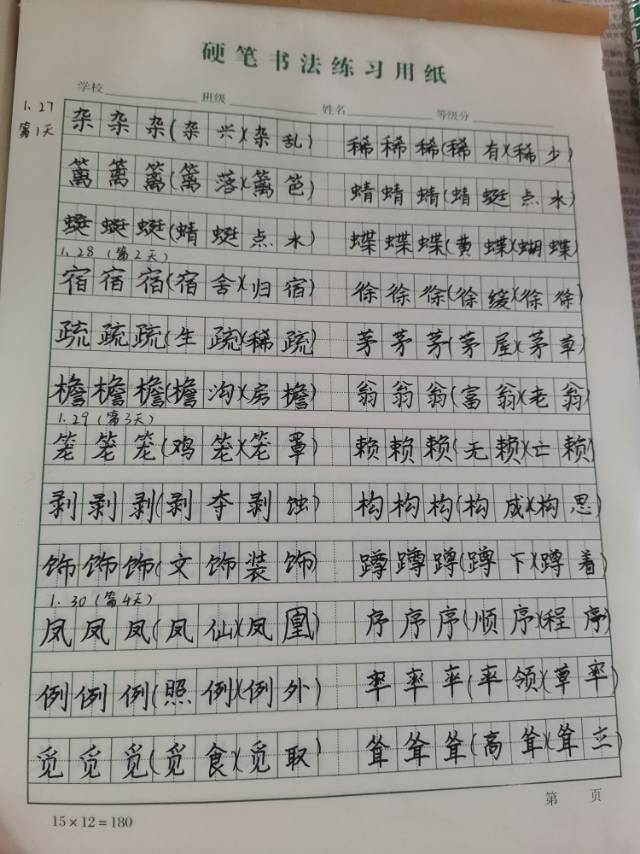 硬笔书法练习用纸
学校 班级 姓名 等级分
1.27
第1天
杂杂杂(杂兴)(杂乱) 稀稀稀(稀有)(稀少)
篱篱篱(篱落)(篱笆) 蜻蜻蜻(蜻蜓点水)
蜓蜓蜓(蜻蜓点水) 蝶蝶蝶(黄蝶)(蝴蝶)
1.28(第2天)
宿宿宿(宿舍)(归宿) 徐徐徐(徐缓)(徐徐)
疏疏疏(生疏)(稀疏) 茅茅茅(茅屋)(茅草)
檐檐檐(檐沟)(房檐) 翁翁翁(富翁)(老翁)
1.29(第3天)
笼笼笼(鸡笼)(笼罩) 赖赖赖(无赖)(亡赖)
剥剥剥(剥夺剥蚀) 构构构(构成)(构思)
饰饰饰(文饰装饰) 蹲蹲蹲(蹲下)(蹲着)
1.30(第4天)
凤凤凤(凤仙)(凤凰) 序序序(顺序)(程序)
例例例(照例)(例外) 率率率(率领)(草率)
觅觅觅(觅食)(觅取) 耸耸耸(高耸)(耸立)
第 页
15×12=180